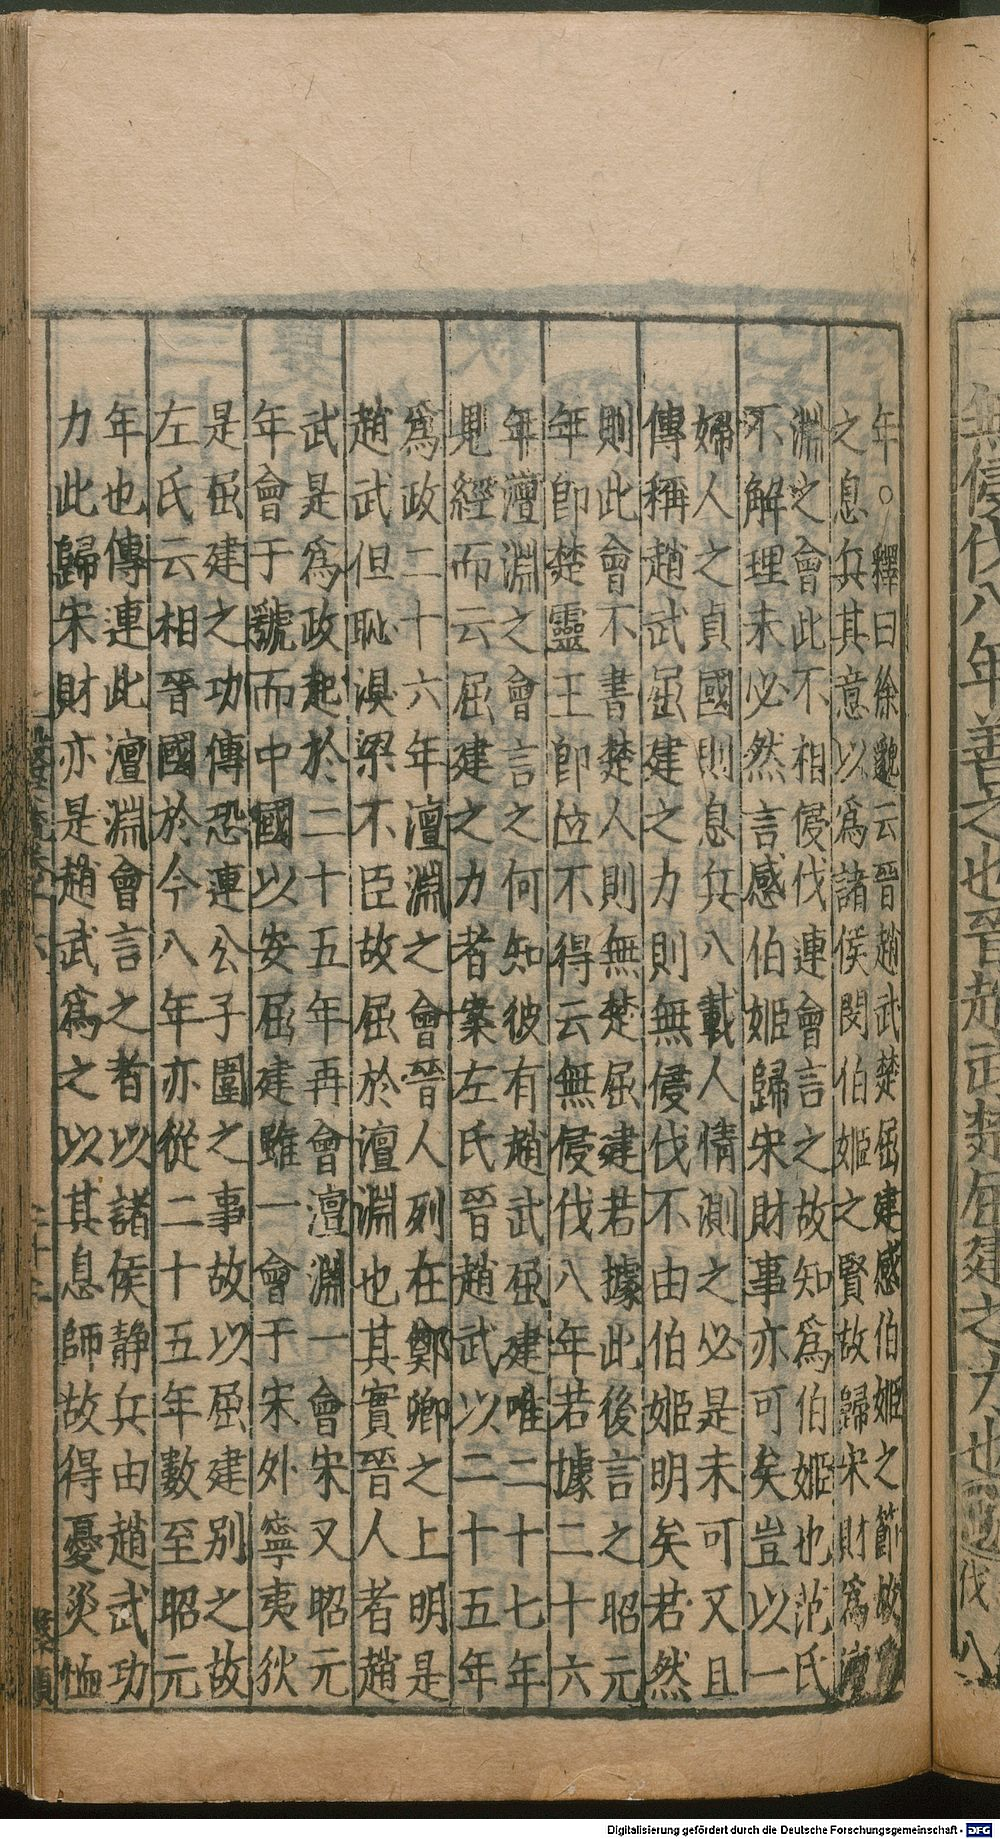 無侵伐八年善之也晉趙武楚屈建之力也
伐
八
年○釋曰徐邈云晉趙武楚屈建感伯姬之節故
之息兵其意以爲諸侯閔伯姬之賢故歸宋財爲澶
淵之會此不相侵伐連會言之故知爲伯姬也范氏
不解理未必然言感伯姬歸宋財事亦可矣豈以一
婦人之貞國則息兵八載人情測之必是未可又且
傳稱趙武屈建之力則無侵伐不由伯姬明矣若然
則此會不書楚人則無楚屈建若據此後言之昭元
年卽楚靈王卽位不得云無侵伐八年若據二十六
年澶淵之會言之何知彼有趙武屈建唯二十七年
見經而云屈建之力者案左氏晉趙武以二十五年
爲政二十六年澶淵之會晉人列在鄭卿之上明是
趙武但恥溴梁不臣故屈於澶淵也其實晉人者趙
武是爲政起於二十五年再會澶淵一會宋又昭元
年會于虢而中國以安屈建雖一會于宋外寧夷狄
是屈建之功傳恐連公子圍之事故以屈建別之故
左氏云相晉國於今八年亦從二十五年數至昭元
年也傳連此澶淵會言之者以諸侯静兵由趙武功
力此歸宋財亦是趙武爲之以其息師故得憂災恤
Digitalisierung gefördert durch die Deutsche Forschungsgemeinschaft - DFG